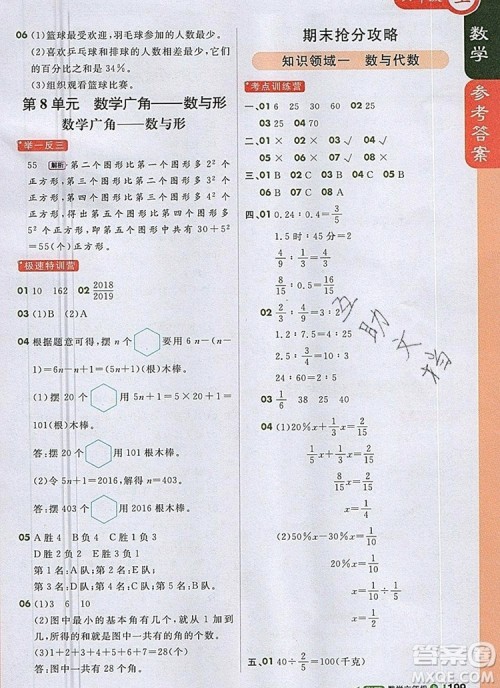 06 (1)篮球最受欢迎,羽毛球参加的人数最少。
(2)喜欢乒乓球和排球的人数相差不大。
(3)组织观看篮球比赛。
第8单元 数学广角——数与形
数学广角——数与形
举一反三
55 解析 第二个图形比第一个图形多2²个
正方形,第三个图形比第二个图形多3²个
正方形,第四个图形比第三个图形多4²个
正方形,得出第五个图形比第四个图形多5²
个正方形,即第五个图形中共有30+5²=
55(个)正方形。
极速特训营
01 10 162 02 2018/2019
03 (1)B (2)A
04 根据题意可得,摆n个⬡需要木棒:
6n-n+1=(5n+1)(根)木棒。
(1)摆20个⬡用5n+1=5×20+1=
101(根)木棒。
答:摆20个⬡用101根木棒。
(2)令5n+1=2016,解得n=403。
答:摆403个⬡用2016根木棒。
05 A胜4负0 B胜3负1 C胜2负2
D胜1负3 E胜0负4
第1名:A队;第2名:B队;第3名:C队;
第4名:D队;第5名:E队
06 (1)3 6 10
(2)图中最小的基本角有7个,所以图中
一共有角7+6+5+4+3+2+1=28(个)
答:图中一共有28个角。
期末抢分攻略
知识领域一 数与代数
考点训练营
一、01 6 16 30 25 25
02 25 60 40
二、01 × 02 √ 03 √ 04 × 05 √
三、01 B 02 B 03 C 04 C 05 A
四、01 0.24:0.4=3/5
1.5时:45分=2
4/9:1/3=4/3
3/5:9/16=16/15
02 4:2/3=6
1.5:7.5=0.2
24:2=60:5
03 1/6 38 15 4/3
04 (1)20%x+1/3x=8/15
8/15x=8/15
x=1
(2)50%x-30%=1/5
50%x=1/2
x=1
五、01 40÷2/5=100(千克)
数学
参考答案
互助文档
作业帮
数学六年级
199